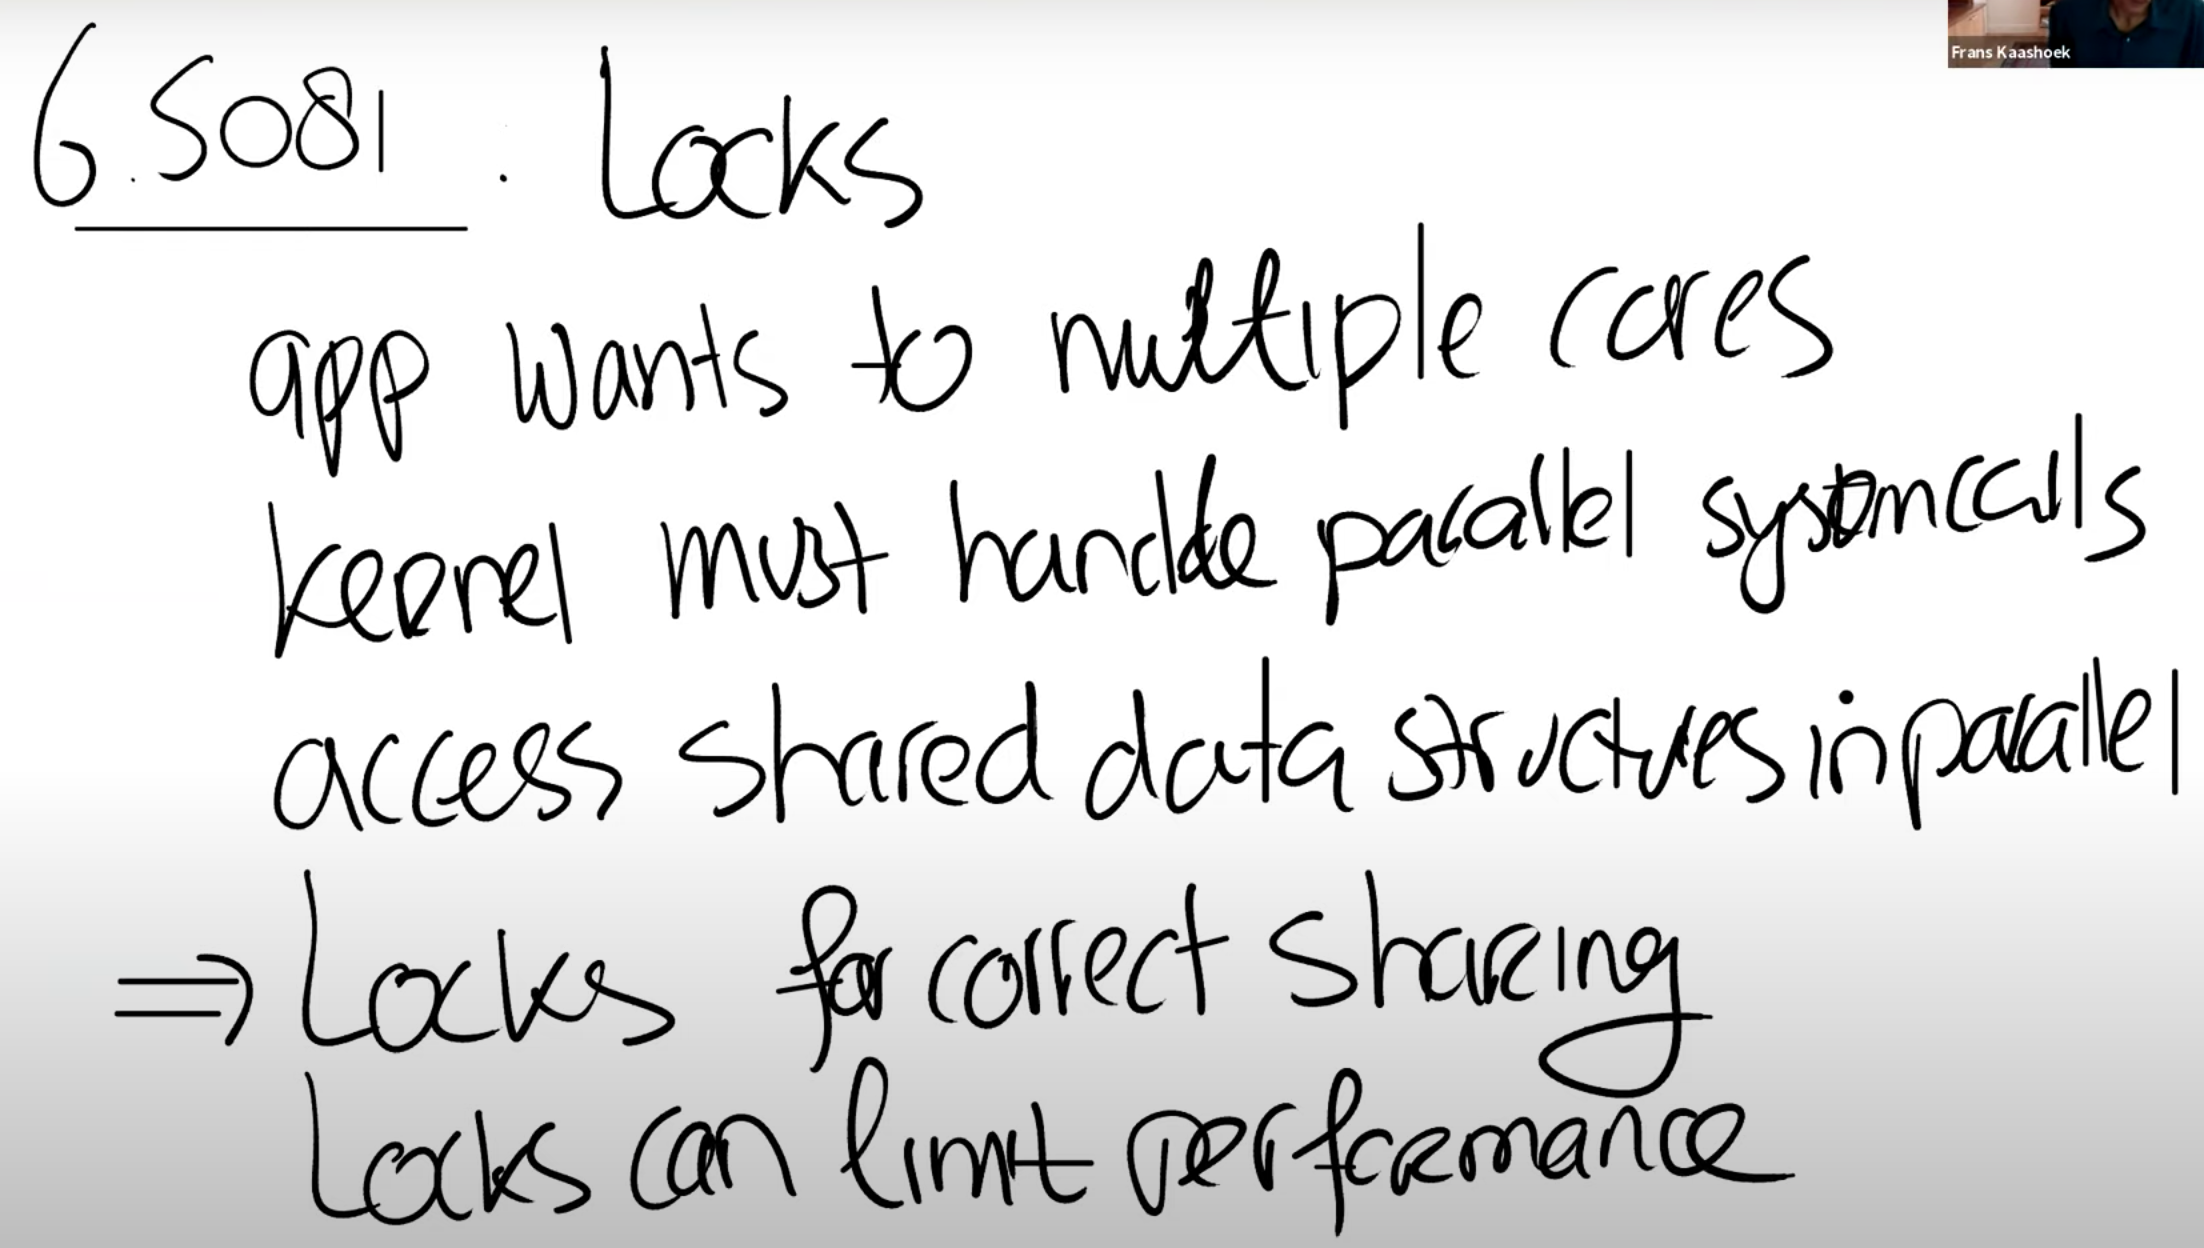 Frans Kaashoek
6.S081. Locks
app wants to multiple cores
kernel must handle parallel systemcalls
access shared data structures in parallel
⇒ Locks for correct sharing
Locks can limit performance